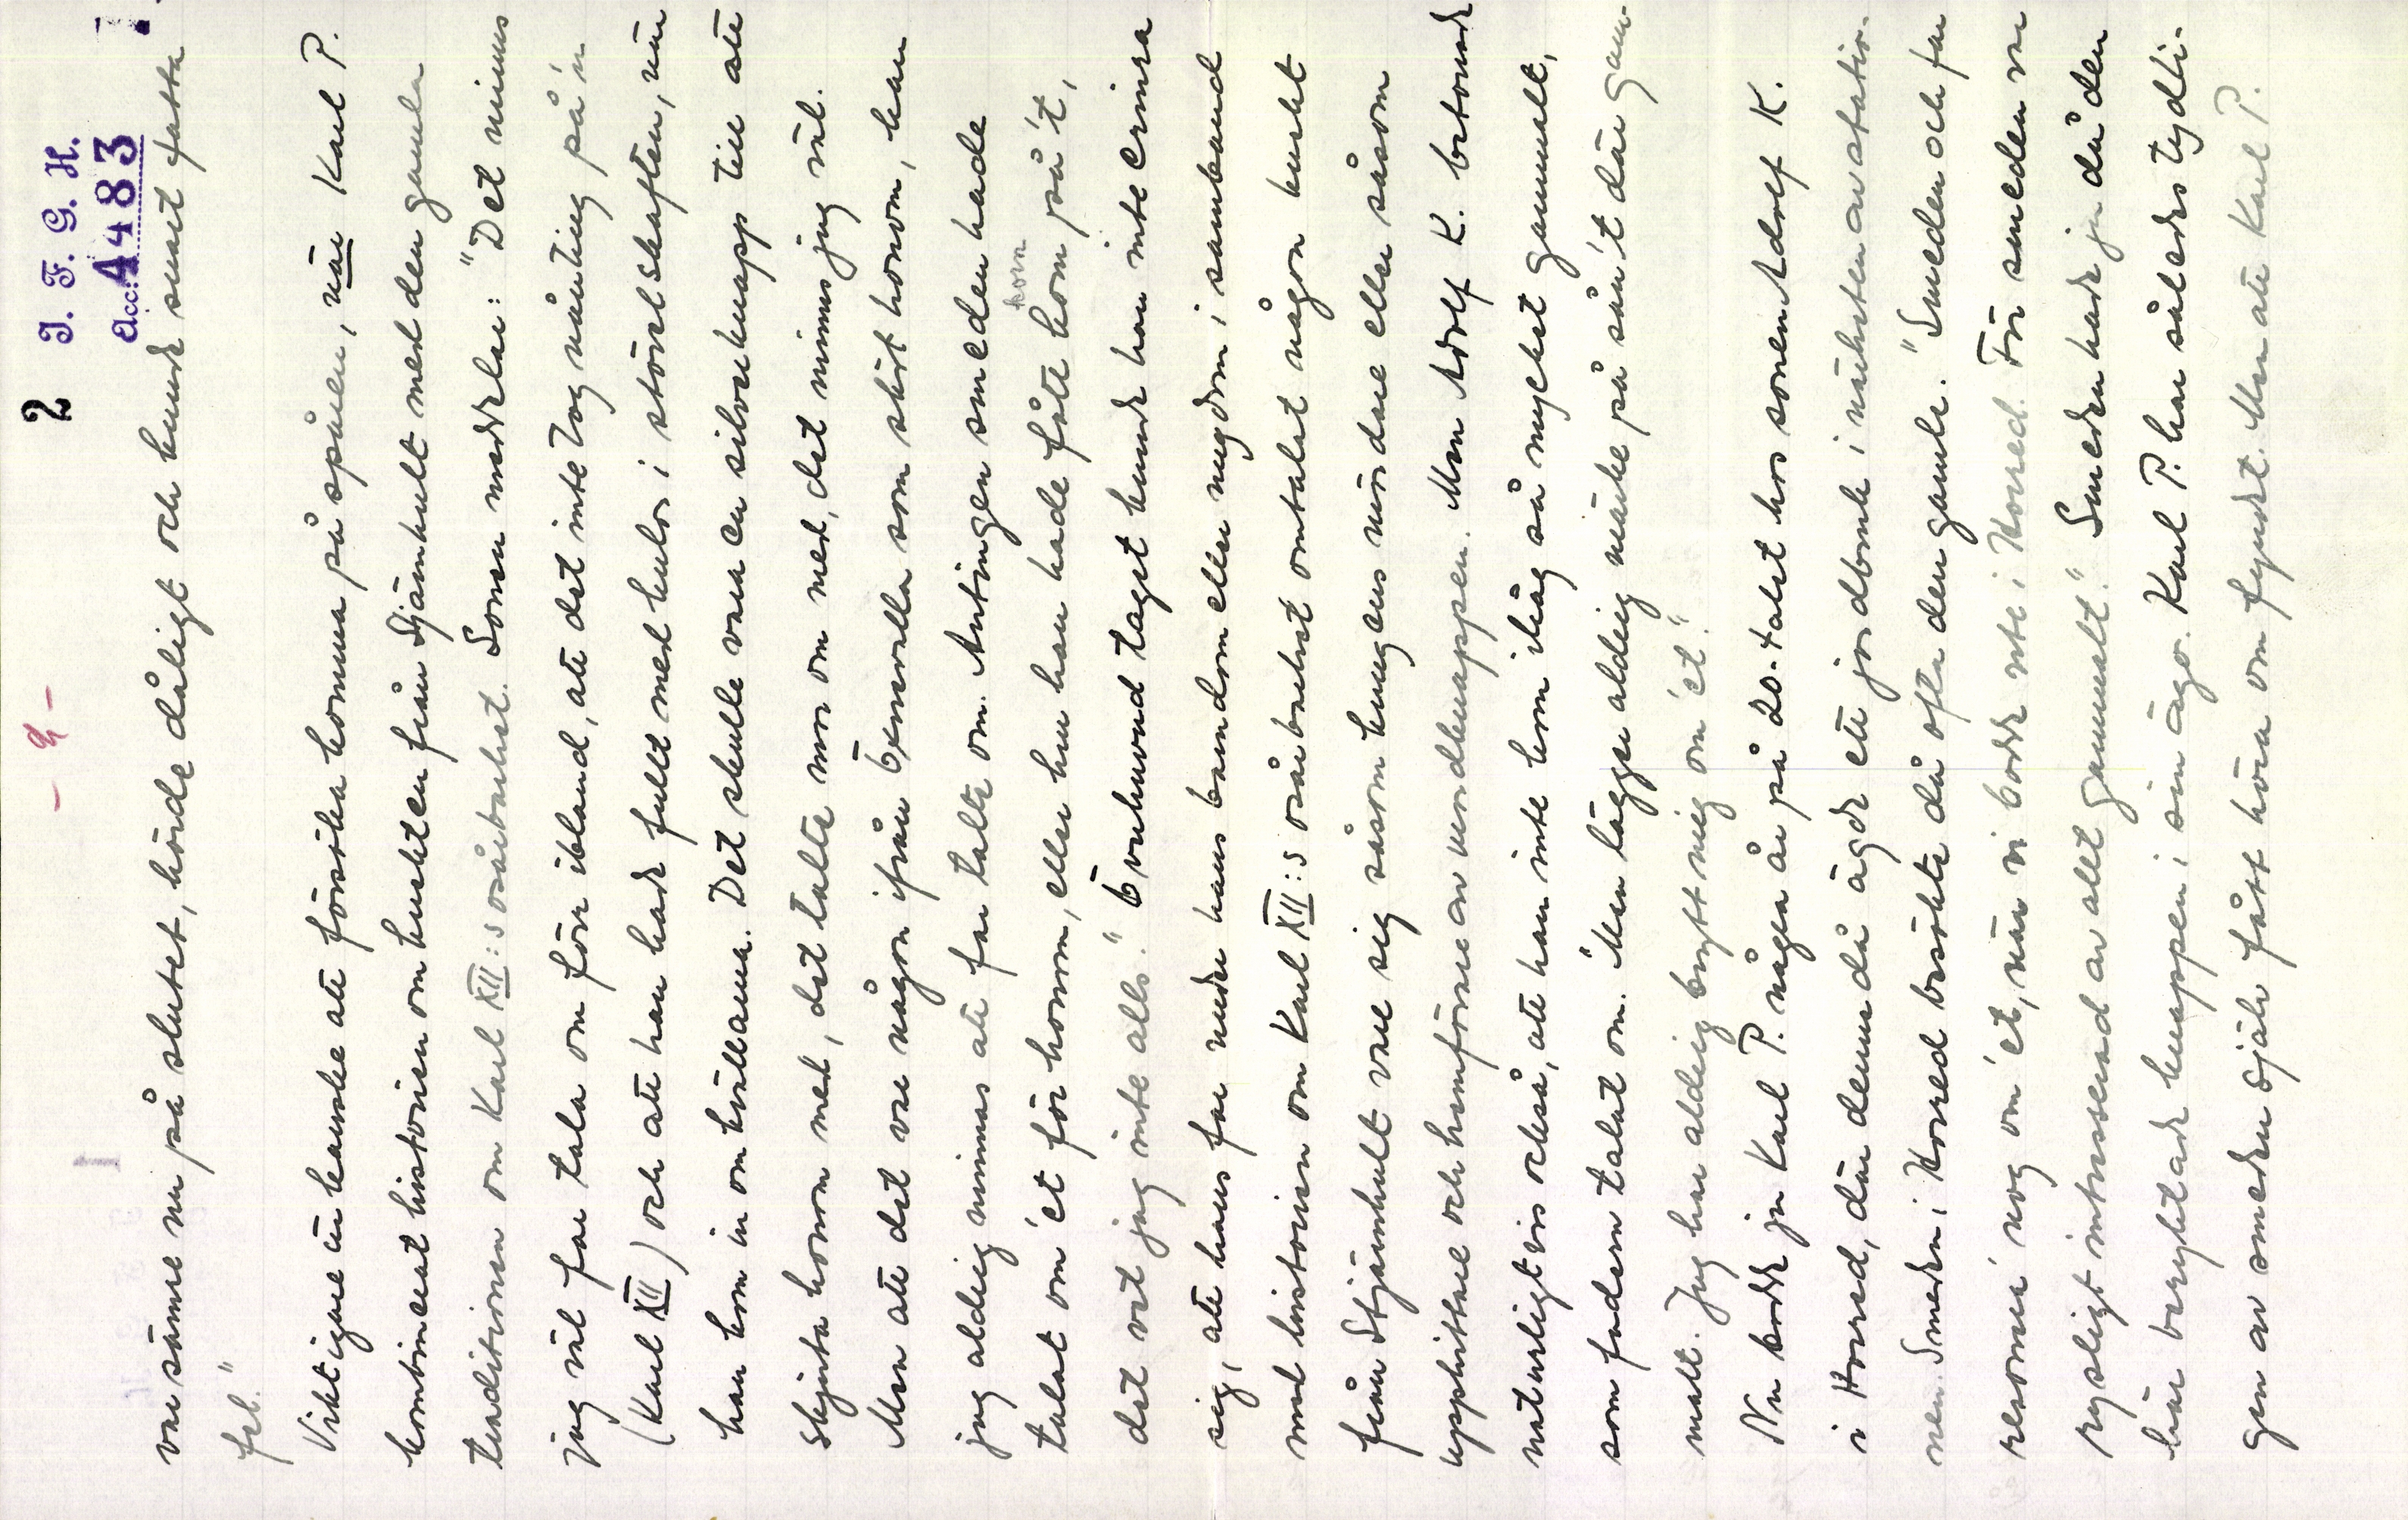 2
I. F. G. H.
Acc. 4483
- 2 -
1
var sämre nu på slutet, hörde dåligt och kunde snart fatta
fel."
Viktigare är kanske att försöka komma på spåren, när Karl P.
kombinerat historien om knekten från Stjärnhult med den gamla
traditionen om Karl XII:s osårbarhet. Sonen meddelar: "Det minns
jag väl far tala om förr ibland, att det inte tog nånting på'n
(Karl XII) och att han hade fullt med kulor i stövelskaften, när
han kom in om kvällarna. Det skulle vara en silverknapp till att
skjuta honom med, det talte mor om med, det minns jag väl.
Men att det var någon ifrån Öxnevalla som sköt honom, kan
jag aldrig minnas att far talte om. Antingen smeden hade
talat om'et för honom, eller hur han hade fått kom på't,
korn
det vet jag inte alls." Överhuvud taget kunde han inte erinra
sig, att hans far under hans barndom eller ungdom i samband
med historien om Karl XII:s osårbarhet omtalat någon knekt
från Stjärnhult vare sig såsom kungens mördare eller såsom
upphittare och hemförare av mordknappen. Men Adolf K. betonade
naturligtvis också, att han inte kom ihåg så mycket gammalt,
som fadern talat om. "Men lägger aldrig märke på sån't där gam-
malt. Jag har aldrig brytt mig om'et."
Nu bodde ju Karl P. några år på 20-talet hos sonen Adolf K.
i Horred, där denne då ägde ett jordbruk i närheten av statio-
nen. Smeden i Horred besökte då ofta den gamle. "Smeden och far
resonerá nog om'et, när vi bodde nte i Horred. För smeden var
rysligt intresserad av allt gammalt." Smeden hade ju då den
här beryktade knappen i sin ägo. Karl P. har således tydli-
gen av smeden själv fått höra om fyndet. Men att Karl P.